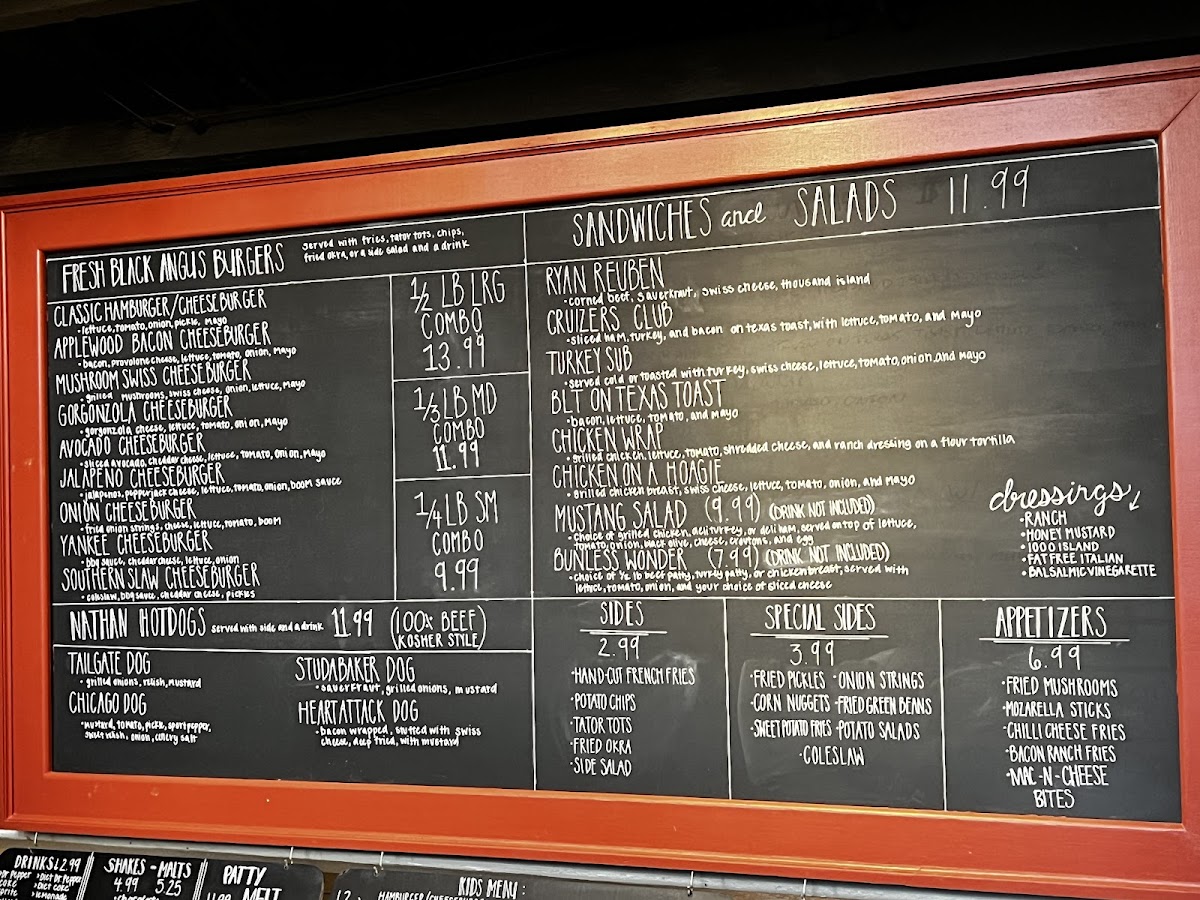 FRESH BLACK ANGUS BURGERS
served with fries, tator tots, chips,
fried okra, or a side salad and a drink
CLASSIC HAMBURGER/CHEESEBURGER
•lettuce, tomato, onion, pickle, mayo
APPLEWOOD BACON CHEESEBURGER
•bacon, provolone cheese, lettuce, tomato, onion, mayo
MUSHROOM SWISS CHEESEBURGER
•grilled mushrooms, swiss cheese, onion, lettuce, mayo
GORGONZOLA CHEESEBURGER
•gorgonzola cheese, lettuce, tomato, onion, mayo
AVOCADO CHEESEBURGER
•sliced avocado, cheddar cheese, lettuce, tomato, onion, mayo
JALAPENO CHEESEBURGER
•jalapenos, pepperjack cheese, lettuce, tomato, onion, boom sauce
ONION CHEESEBURGER
•fried onion strings, cheese, lettuce, tomato, boom
YANKEE CHEESEBURGER
•bbq sauce, cheddar cheese, lettuce, onion
SOUTHERN SLAW CHEESEBURGER
•coleslaw, bbq sauce, cheddar cheese, pickles
1/2 LB LRG
COMBO
13.99
1/3 LB MD
COMBO
11.99
1/4 LB SM
COMBO
9.99
NATHAN HOTDOGS served with side and a drink 11.99 (100% BEEF)
(KOSHER STYLE)
TAILGATE DOG
•grilled onions, relish, mustard
CHICAGO DOG
•mustard, tomato, pickle, sport pepper,
sweet relish, onion, celery salt
STUDABAKER DOG
•sauerkraut, grilled onions, mustard
HEARTATTACK DOG
•bacon wrapped, stuffed with swiss
cheese, deep fried, with mustard
SANDWICHES and SALADS 11.99
RYAN REUBEN
•corned beef, sauerkraut, swiss cheese, thousand island
CRUIZERS CLUB
•sliced ham, turkey, and bacon on texas toast, with lettuce, tomato, and mayo
TURKEY SUB
•served cold or toasted with turkey, swiss cheese, lettuce, tomato, onion, and mayo
BLT ON TEXAS TOAST
•bacon, lettuce, tomato, and mayo
CHICKEN WRAP
•grilled chicken, lettuce, tomato, shredded cheese, and ranch dressing on a flour tortilla
CHICKEN ON A HOAGIE
•grilled chicken breast, swiss cheese, lettuce, tomato, onion, and mayo
MUSTANG SALAD (9.99) (DRINK NOT INCLUDED)
•choice of grilled chicken, deli turkey, or deli ham, served on top of lettuce,
tomato, onion, black olive, cheese, croutons, and egg
BUNLESS WONDER (7.99) (DRINK NOT INCLUDED)
•choice of 1/2 lb beef patty, turkey patty, or chicken breast, served with
lettuce, tomato, onion, and your choice of sliced cheese
dressings
•RANCH
•HONEY MUSTARD
•1000 ISLAND
•FAT FREE ITALIAN
•BALSALMIC VINEGARETTE
SIDES
2.99
•HAND-CUT FRENCH FRIES
•POTATO CHIPS
•TATOR TOTS
•FRIED OKRA
•SIDE SALAD
SPECIAL SIDES
3.99
•FRIED PICKLES •ONION STRINGS
•CORN NUGGETS •FRIED GREEN BEANS
•SWEET POTATO FRIES •POTATO SALADS
•COLESLAW
APPETIZERS
6.99
•FRIED MUSHROOMS
•MOZARELLA STICKS
•CHILLI CHEESE FRIES
•BACON RANCH FRIES
•MAC-N-CHEESE
BITES
DRINKS 2.99
Dr Pepper •Diet Dr Pepper
coke •Diet coke
sprite •lemonade
SHAKES - MALTS
4.99 5.25
PATTY
MELT
KIDS MENU: